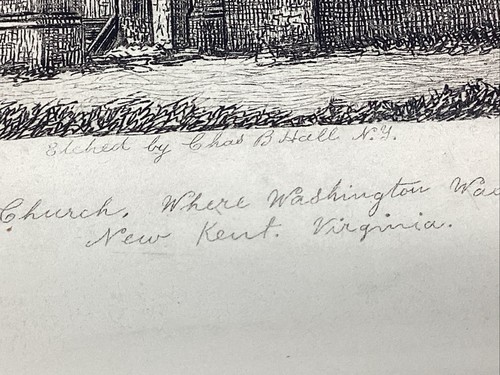 Etched by Chas B Hall N.Y.
Church. Where Washington Wa
New Kent. Virginia.